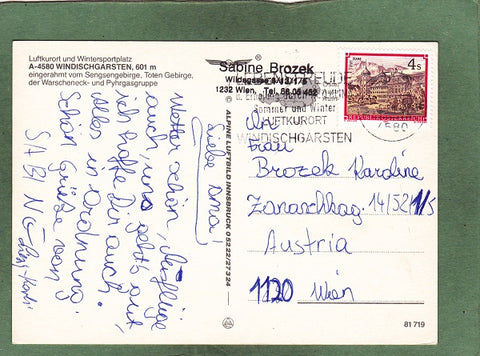 Luftkurort und Wintersportplatz
A-4580 WINDISCHGARSTEN, 601 m
eingerahmt vom Sengsengebirge, Toten Gebirge,
der Warscheneck- und Pyhrgasgruppe
Liebe Oma!
Wetter schön, Ausflüge
auch, uns geht's gut,
ich hoffe Dir auch.
Alles in Ordnung.
Schöne Grüße von
SABINE
© ALPINE LUFTBILD INNSBRUCK 0 5222/27324
Sabine Brozek
1232 Wien, Tel.
Sommer und Winter
LUFTKURORT
WINDISCHGARSTEN
4580
4 S
REPUBLIK ÖSTERREICH
Frau
Brozek Karoline
14/52/1/5
Austria
1120 Wien
81 719